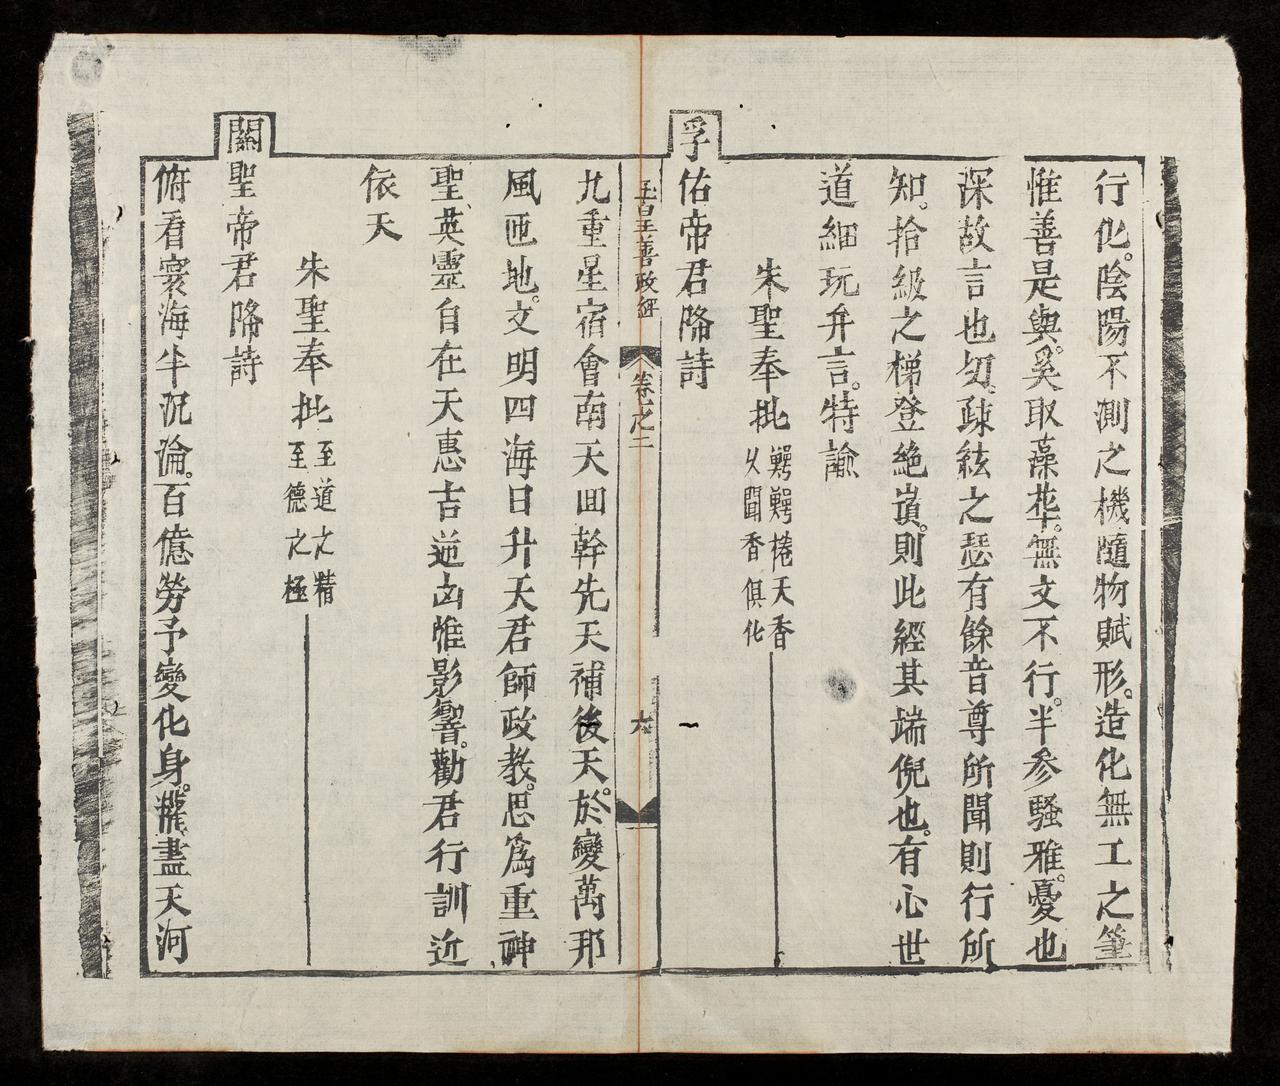 行化。陰陽不測之機隨物賦形。造化無工之筆
惟善是與。奚取藻華。無文不行。半參騷雅。憂也
深故言也切。疎絃之瑟有餘音尊所聞則行所
知。拾級之梯登絶嵿。則此經其端倪也。有心世
道細玩弁言。特諭
朱聖奉批
鸎鸎捲天香
以聞香俱化
孚佑帝君降詩
玉皇王善政經 卷之二 六
九重星宿會南天回幹先天補後天。於變萬邦
風匝地。文明四海日升天君師政教。思爲重神
聖英靈自在天惠吉逆凶惟影響。勸君行訓近
依天
朱聖奉批
至道之精
至德之極
關聖帝君降詩
俯看寰海半沉淪。百億勞予變化身。瀧盡天河